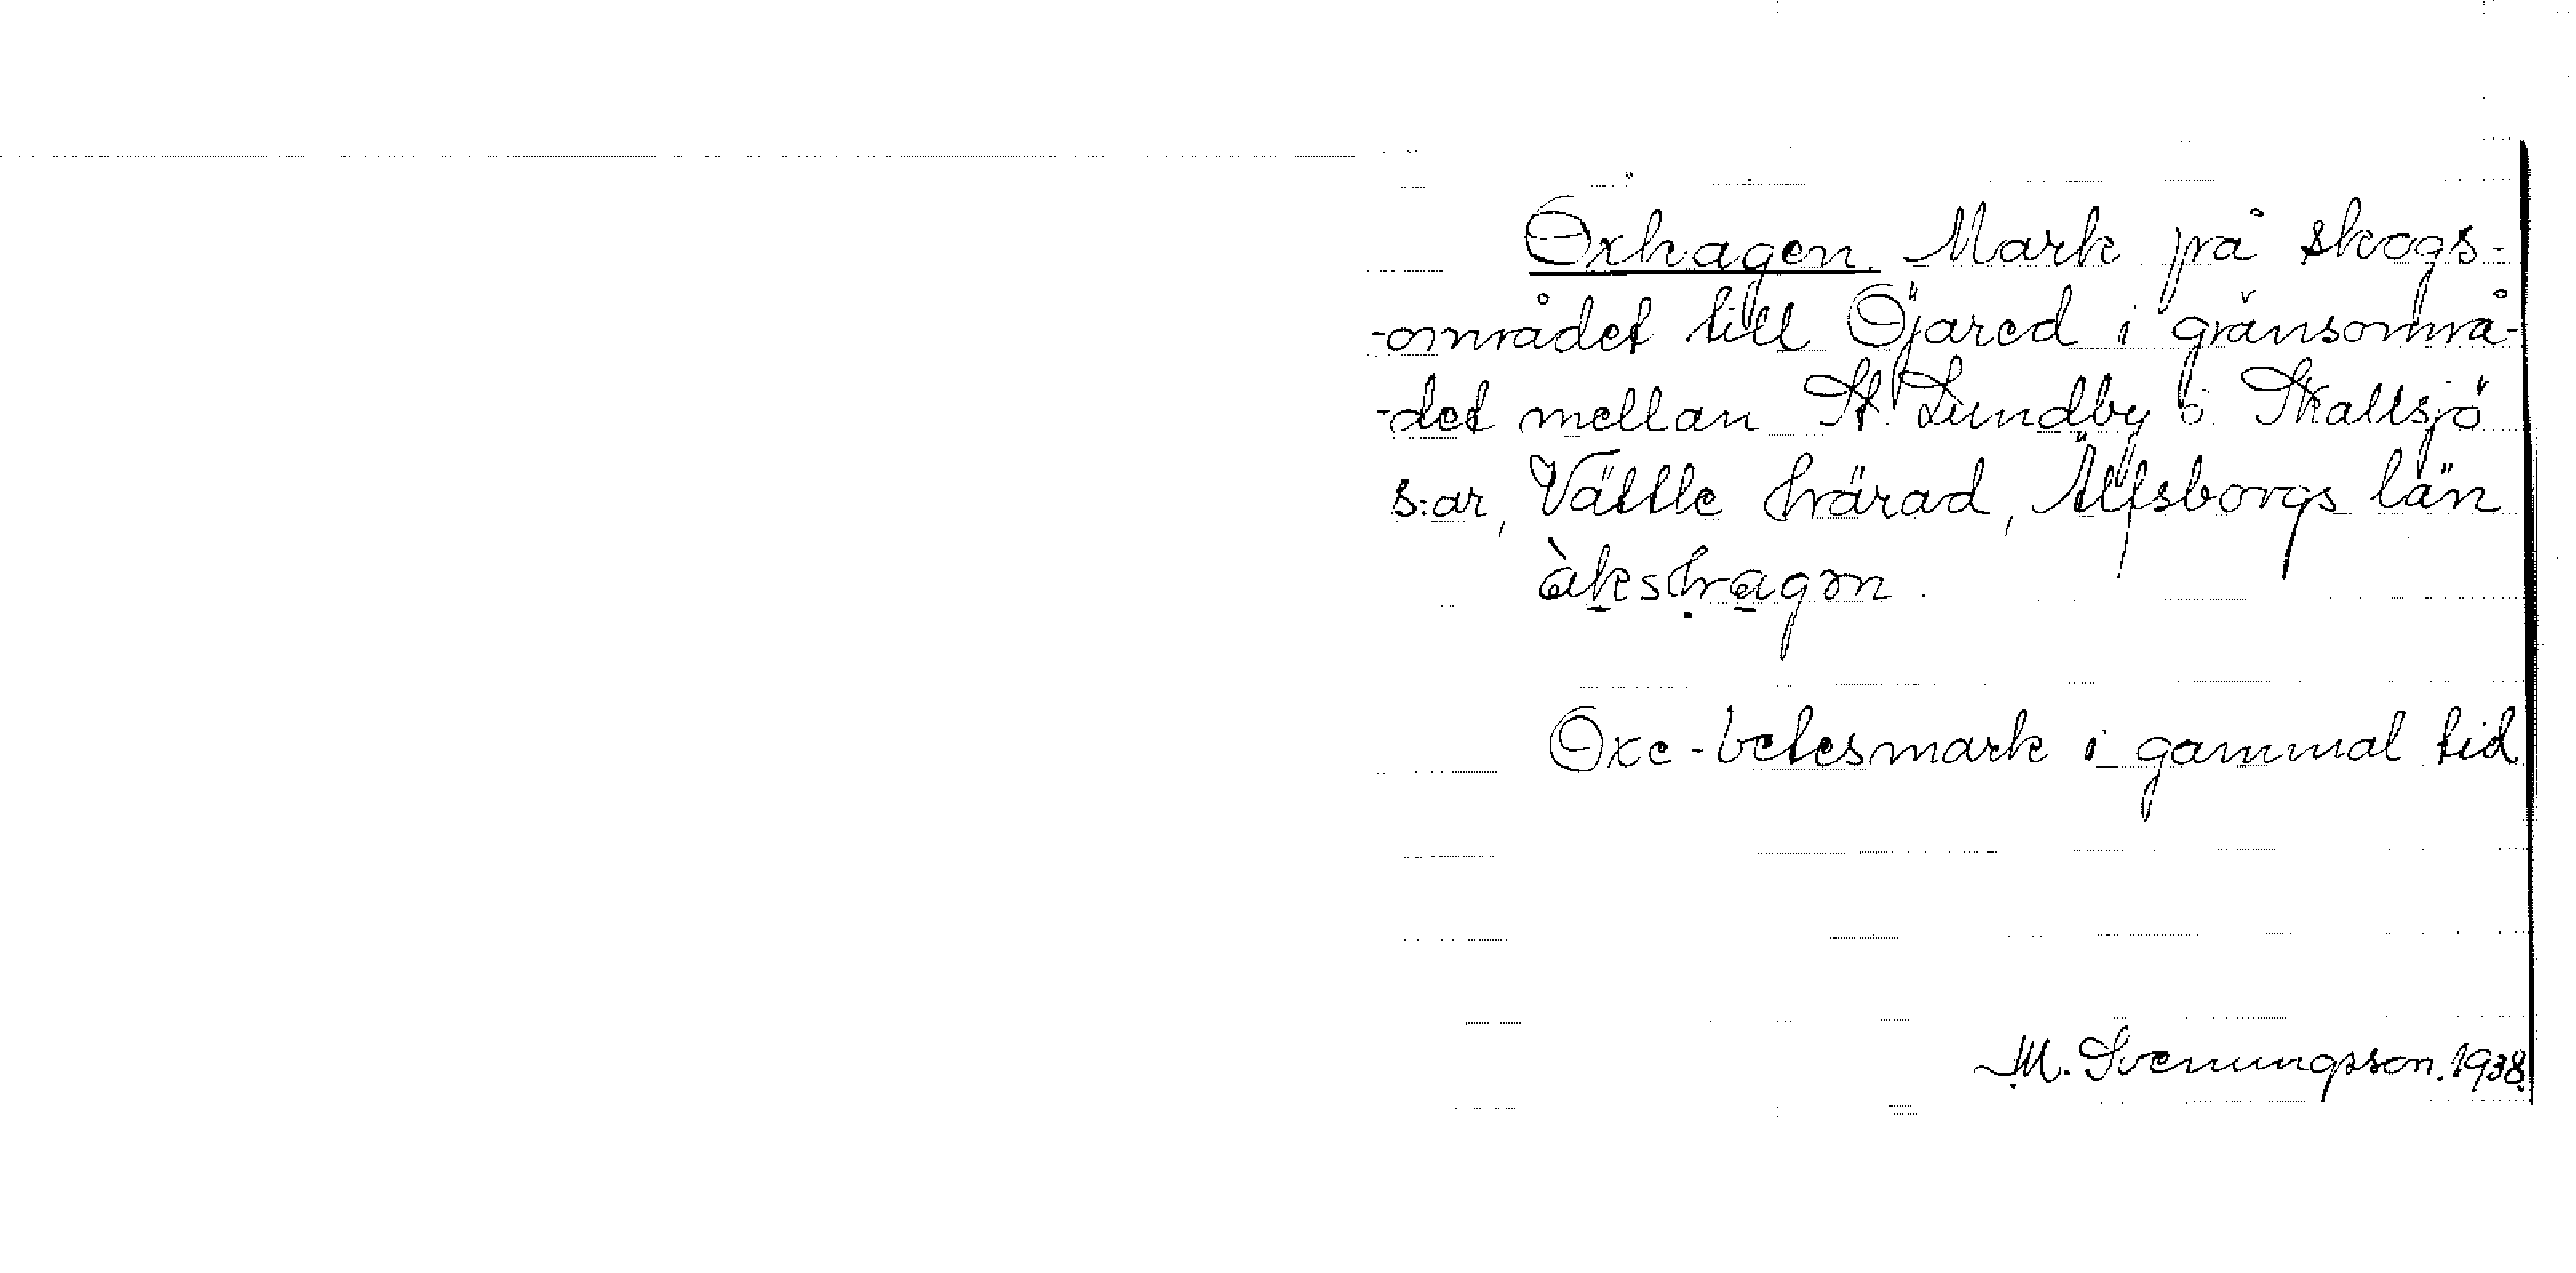 Oxhagen. Mark på skogs-
-området till Öjared i gränsområ-
-det mellan St. Lundby o. Skallsjö
s:ar, Vättle härad, Älfsborgs län
àkshagən.
Oxe-betesmark i gammal tid
M. Svenungsson. 1938.